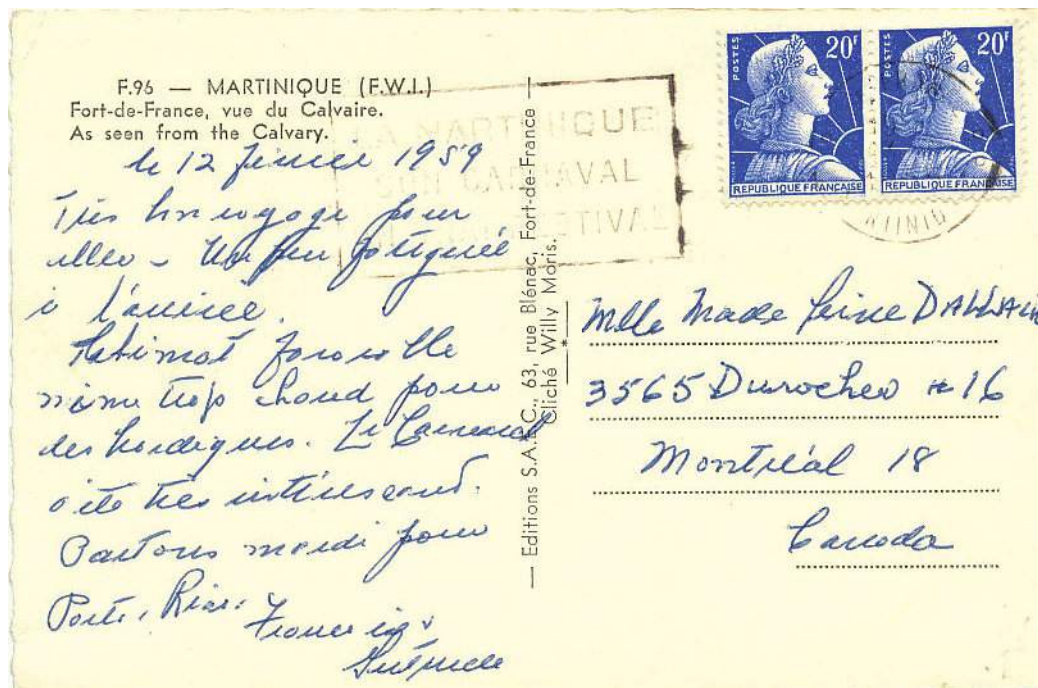 F.96 — MARTINIQUE (F.W.I.)
Fort-de-France, vue du Calvaire.
As seen from the Calvary.
le 12 février 1959
Très bon voyage pour
aller – Un peu fatiguée
à l'arrivée.
Climat
même trop chaud pour
des nordiques. Le Carnaval
a été très intéressant.
Partons mardi pour
Porto Rico.
— Editions S.A.E.C., 63, rue Blénac, Fort-de-France —
Cliché Willy Moris.
LA MARTINIQUE
SON CARNAVAL
POSTES
20F
REPUBLIQUE FRANÇAISE
POSTES
20F
REPUBLIQUE FRANÇAISE
Mlle Madeleine
3565 Durocher #16
Montréal 18
Canada